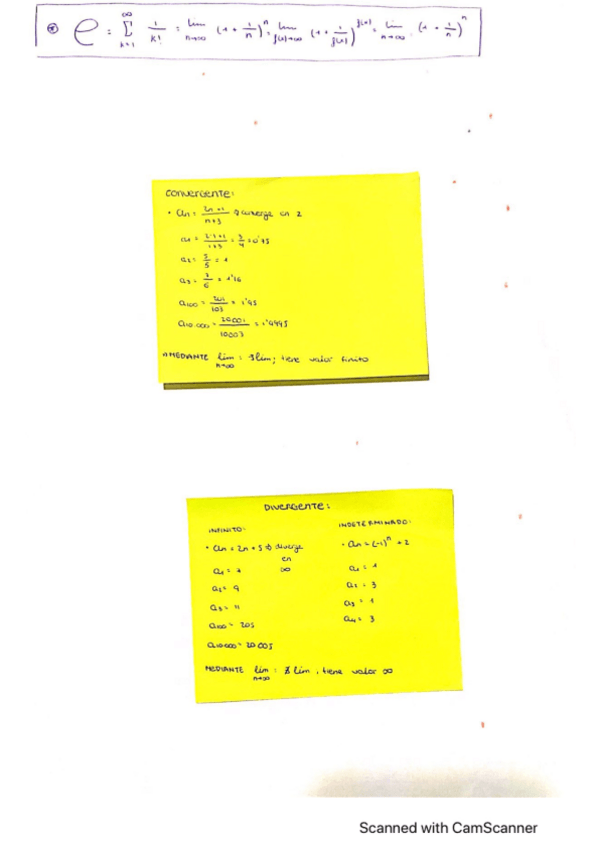 e = ∞ Σ k=1 1/k! = lim n→∞ (1 + 1/n)^n = lim f(x)→∞ (1 + 1/f(x))^f(x) = lim n→∞ (1 + 1/n)^n
CONVERGENTE:
• an = 2n+1/n+3 converge en 2
a1 = 2·1+1/1+3 = 3/4 = 0'75
a2 = 5/5 = 1
a3 = 7/6 = 1'16
a100 = 201/103 = 1'95
a10.000 = 20001/10003 = 1'9995
MEDIANTE lim n→∞ : ∃ lim; tiene valor finito
DIVERGENTE:
INFINITO:
• an = 2n + 5 diverge en ∞
a1 = 7
a2 = 9
a3 = 11
a100 = 205
a10000 = 20005
INDETERMINADO:
• an = (-1)^n + 2
a1 = 1
a2 = 3
a3 = 1
a4 = 3
MEDIANTE lim n→∞ : ∄ lim, tiene valor ∞
Scanned with CamScanner